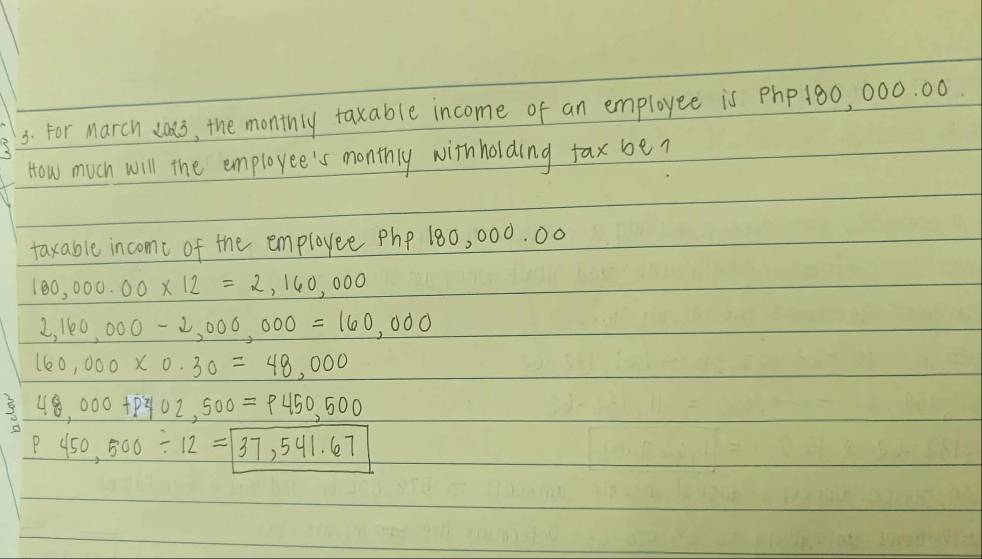 3. For March 2023, the monthly taxable income of an employee is Php 180,000.00.
How much will the employee's monthly withholding tax be?
taxable income of the employee Php 180,000.00
180,000.00 x 12 = 2,160,000
2,160,000 - 2,000,000 = 160,000
160,000 x 0.30 = 48,000
48,000 + P402,500 = P450,500
P 450,500 ÷ 12 = 37,541.67